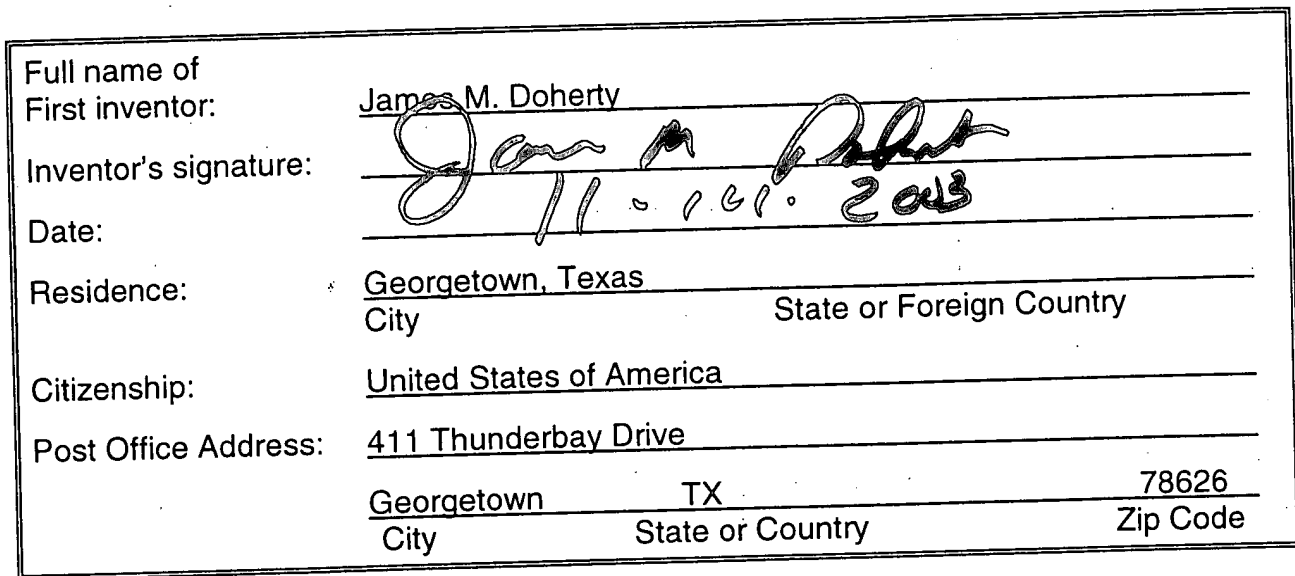 Full name of
First inventor: James M. Doherty
Inventor's signature: James M Doherty
Date:
Residence: Georgetown, Texas
City State or Foreign Country
Citizenship: United States of America
Post Office Address: 411 Thunderbay Drive
Georgetown TX 78626
City State or Country Zip Code